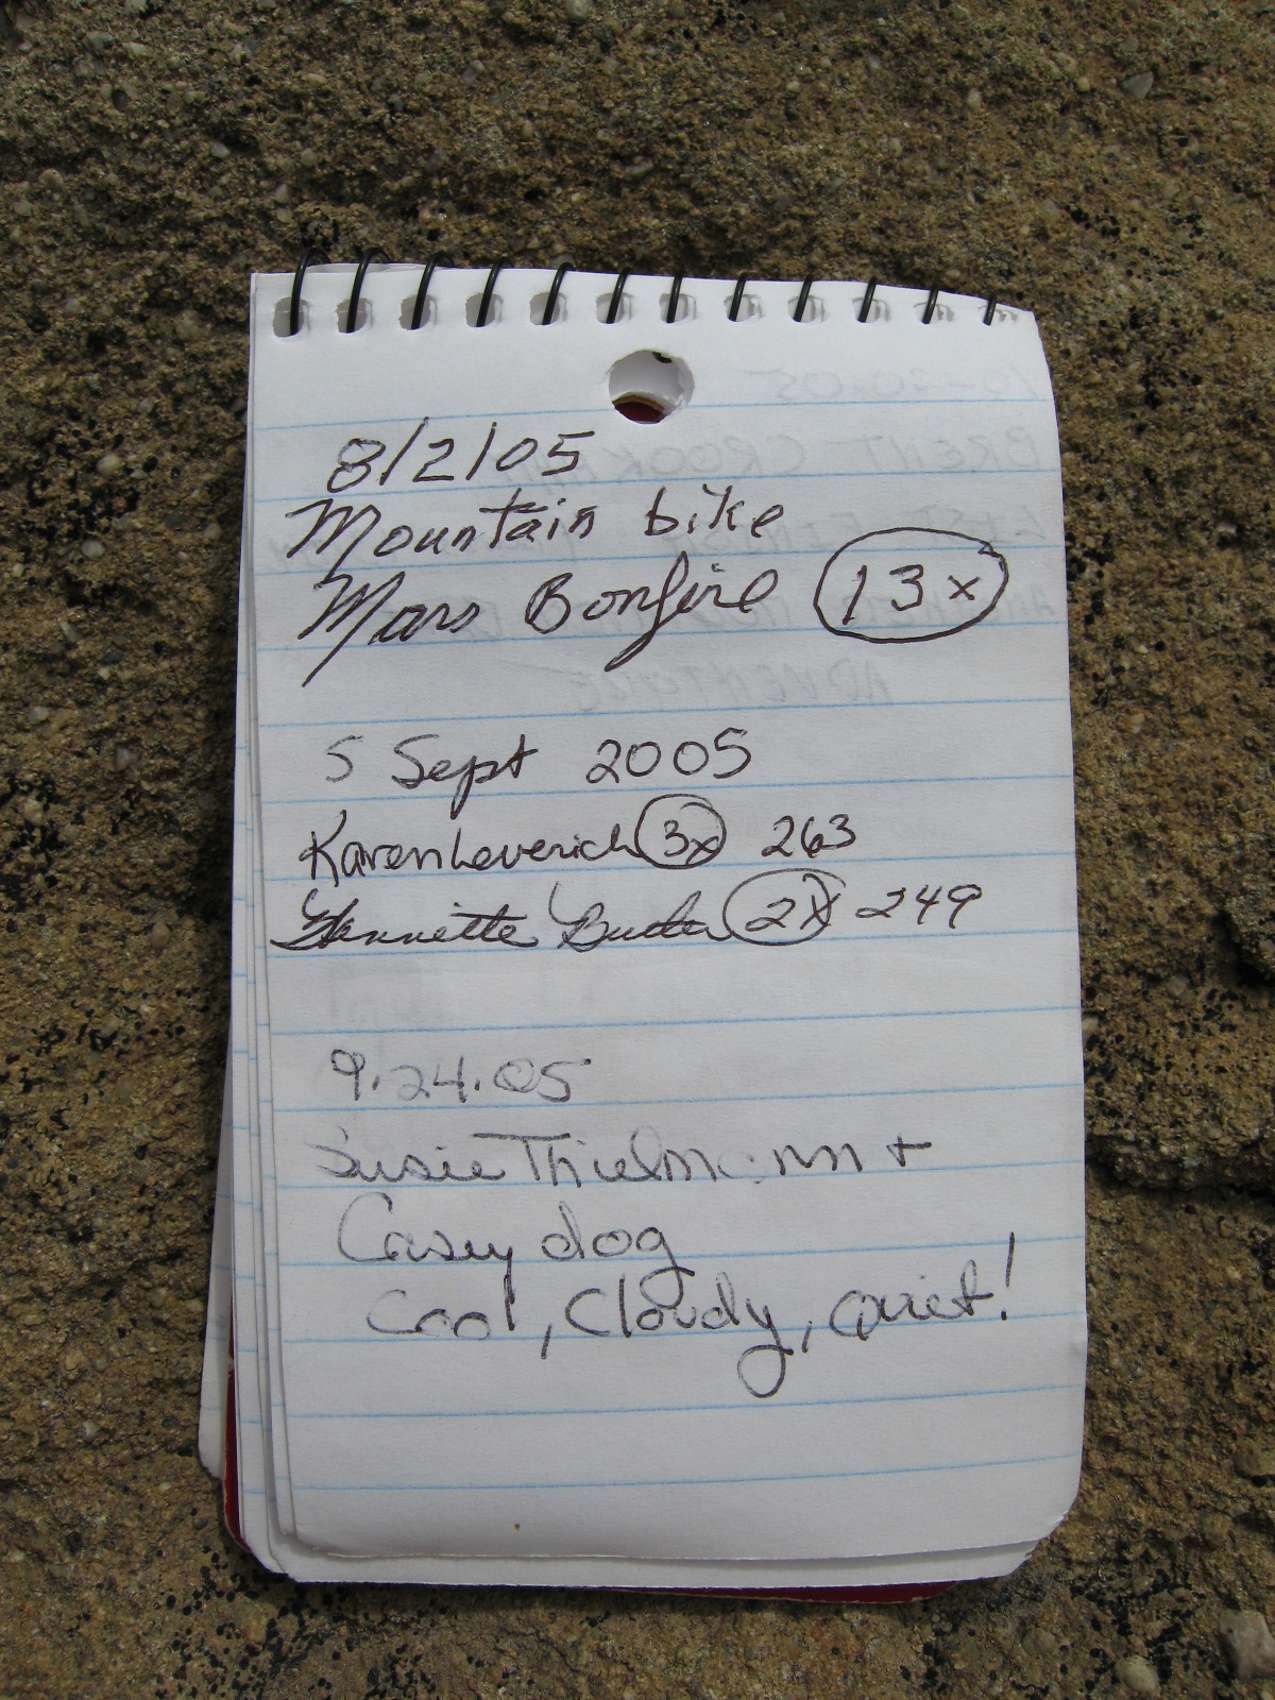 8/2/05
Mountain bike
Mars Bonfire 13x
5 Sept 2005
Karen Leverich 3x 263
2x 249
9.24.05
Susie Thielmann +
Casey dog
Cool, Cloudy, quiet!